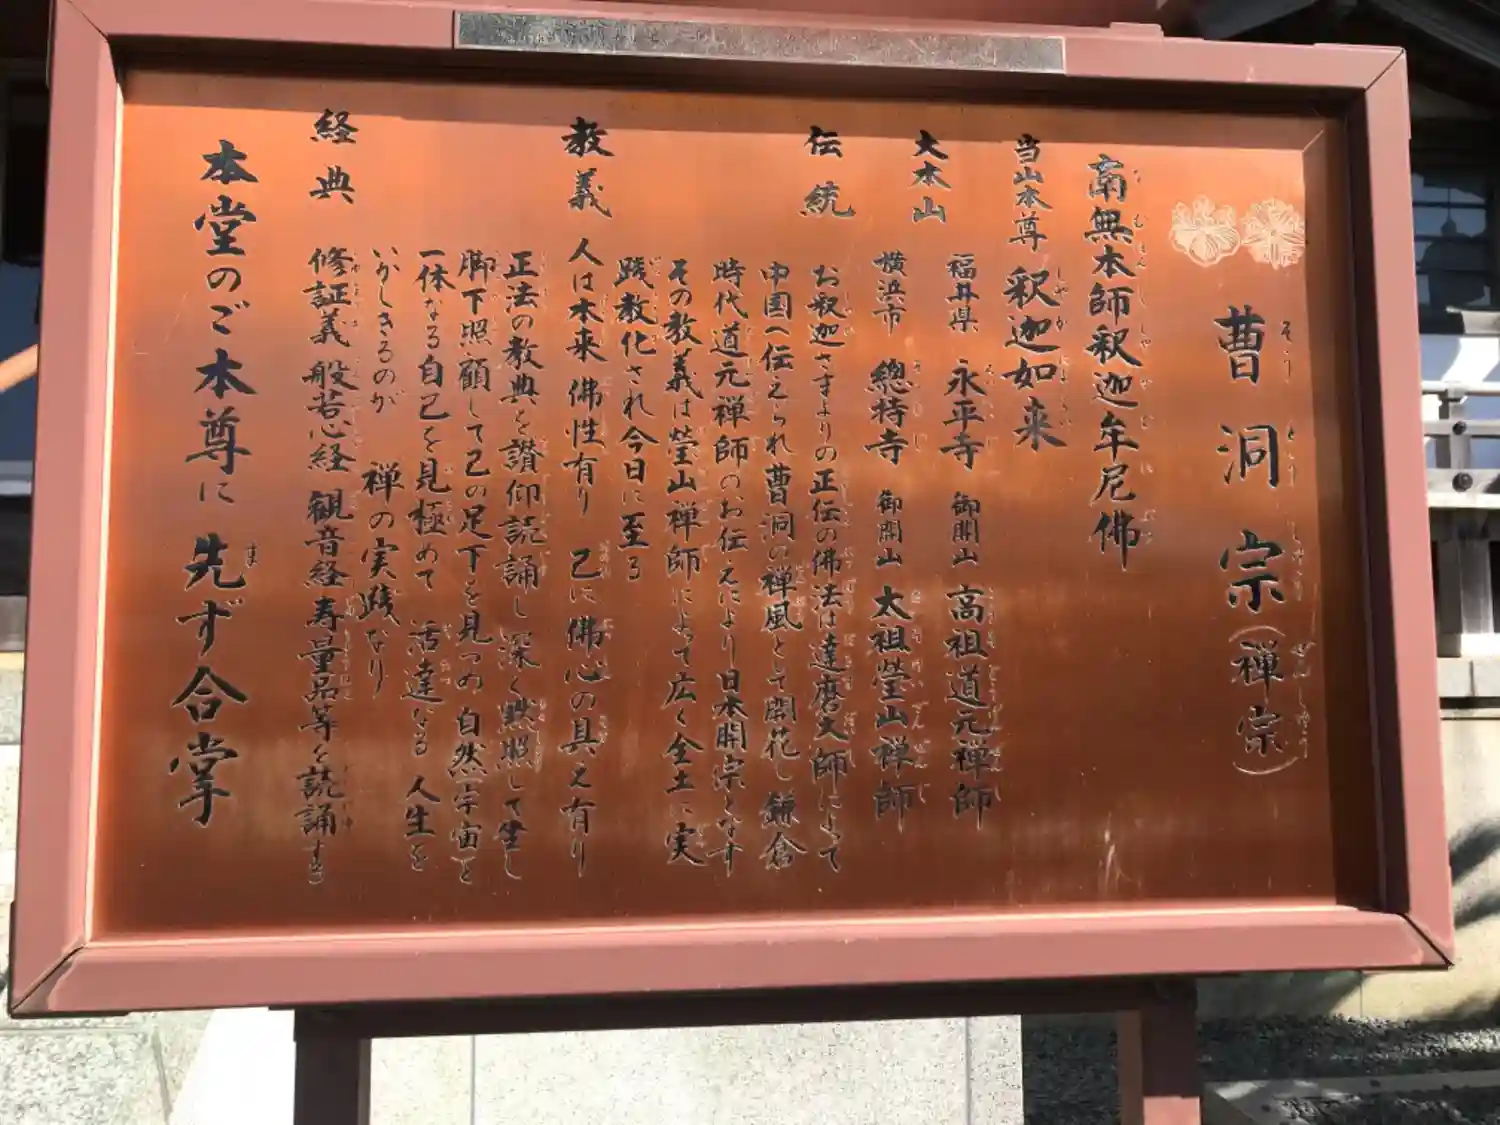 曹洞宗(禅宗)
南無本師釈迦牟尼佛
当山本尊 釈迦如来
大本山 福井県 永平寺 御開山 高祖道元禅師
横浜市 總持寺 御開山 太祖瑩山禅師
伝統 お釈迦さまよりの正伝の佛法は達磨大師によって
中国へ伝えられ曹洞の禅風として開花し鎌倉
時代道元禅師のお伝えにより日本開宗となす
その教義は瑩山禅師によって広く全土に実
践教化され今日に至る
教義 人は本来佛性有り 己に佛心の具え有り
正法の教典を讃仰読誦し深く黙照して坐し
脚下照顧して己の足下を見つめ自然(宇宙)と
一体なる自己を見極めて 活達なる人生を
いかしきるのが 禅の実践なり
経典 修証義 般若心経 観音経 寿量品等を読誦する
本堂のご本尊に 先ず合掌